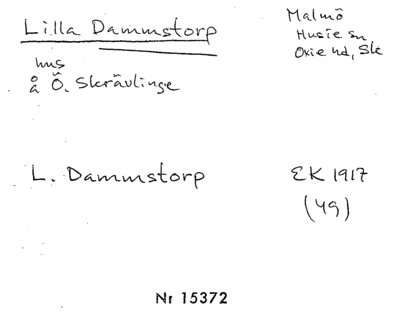 Lilla Dammstorp
Malmö
Husie sn
Oxie hd, Sk
hus
å Ö. Skrävlinge
L. Dammstorp
EK 1917
(49)
Nr 15372